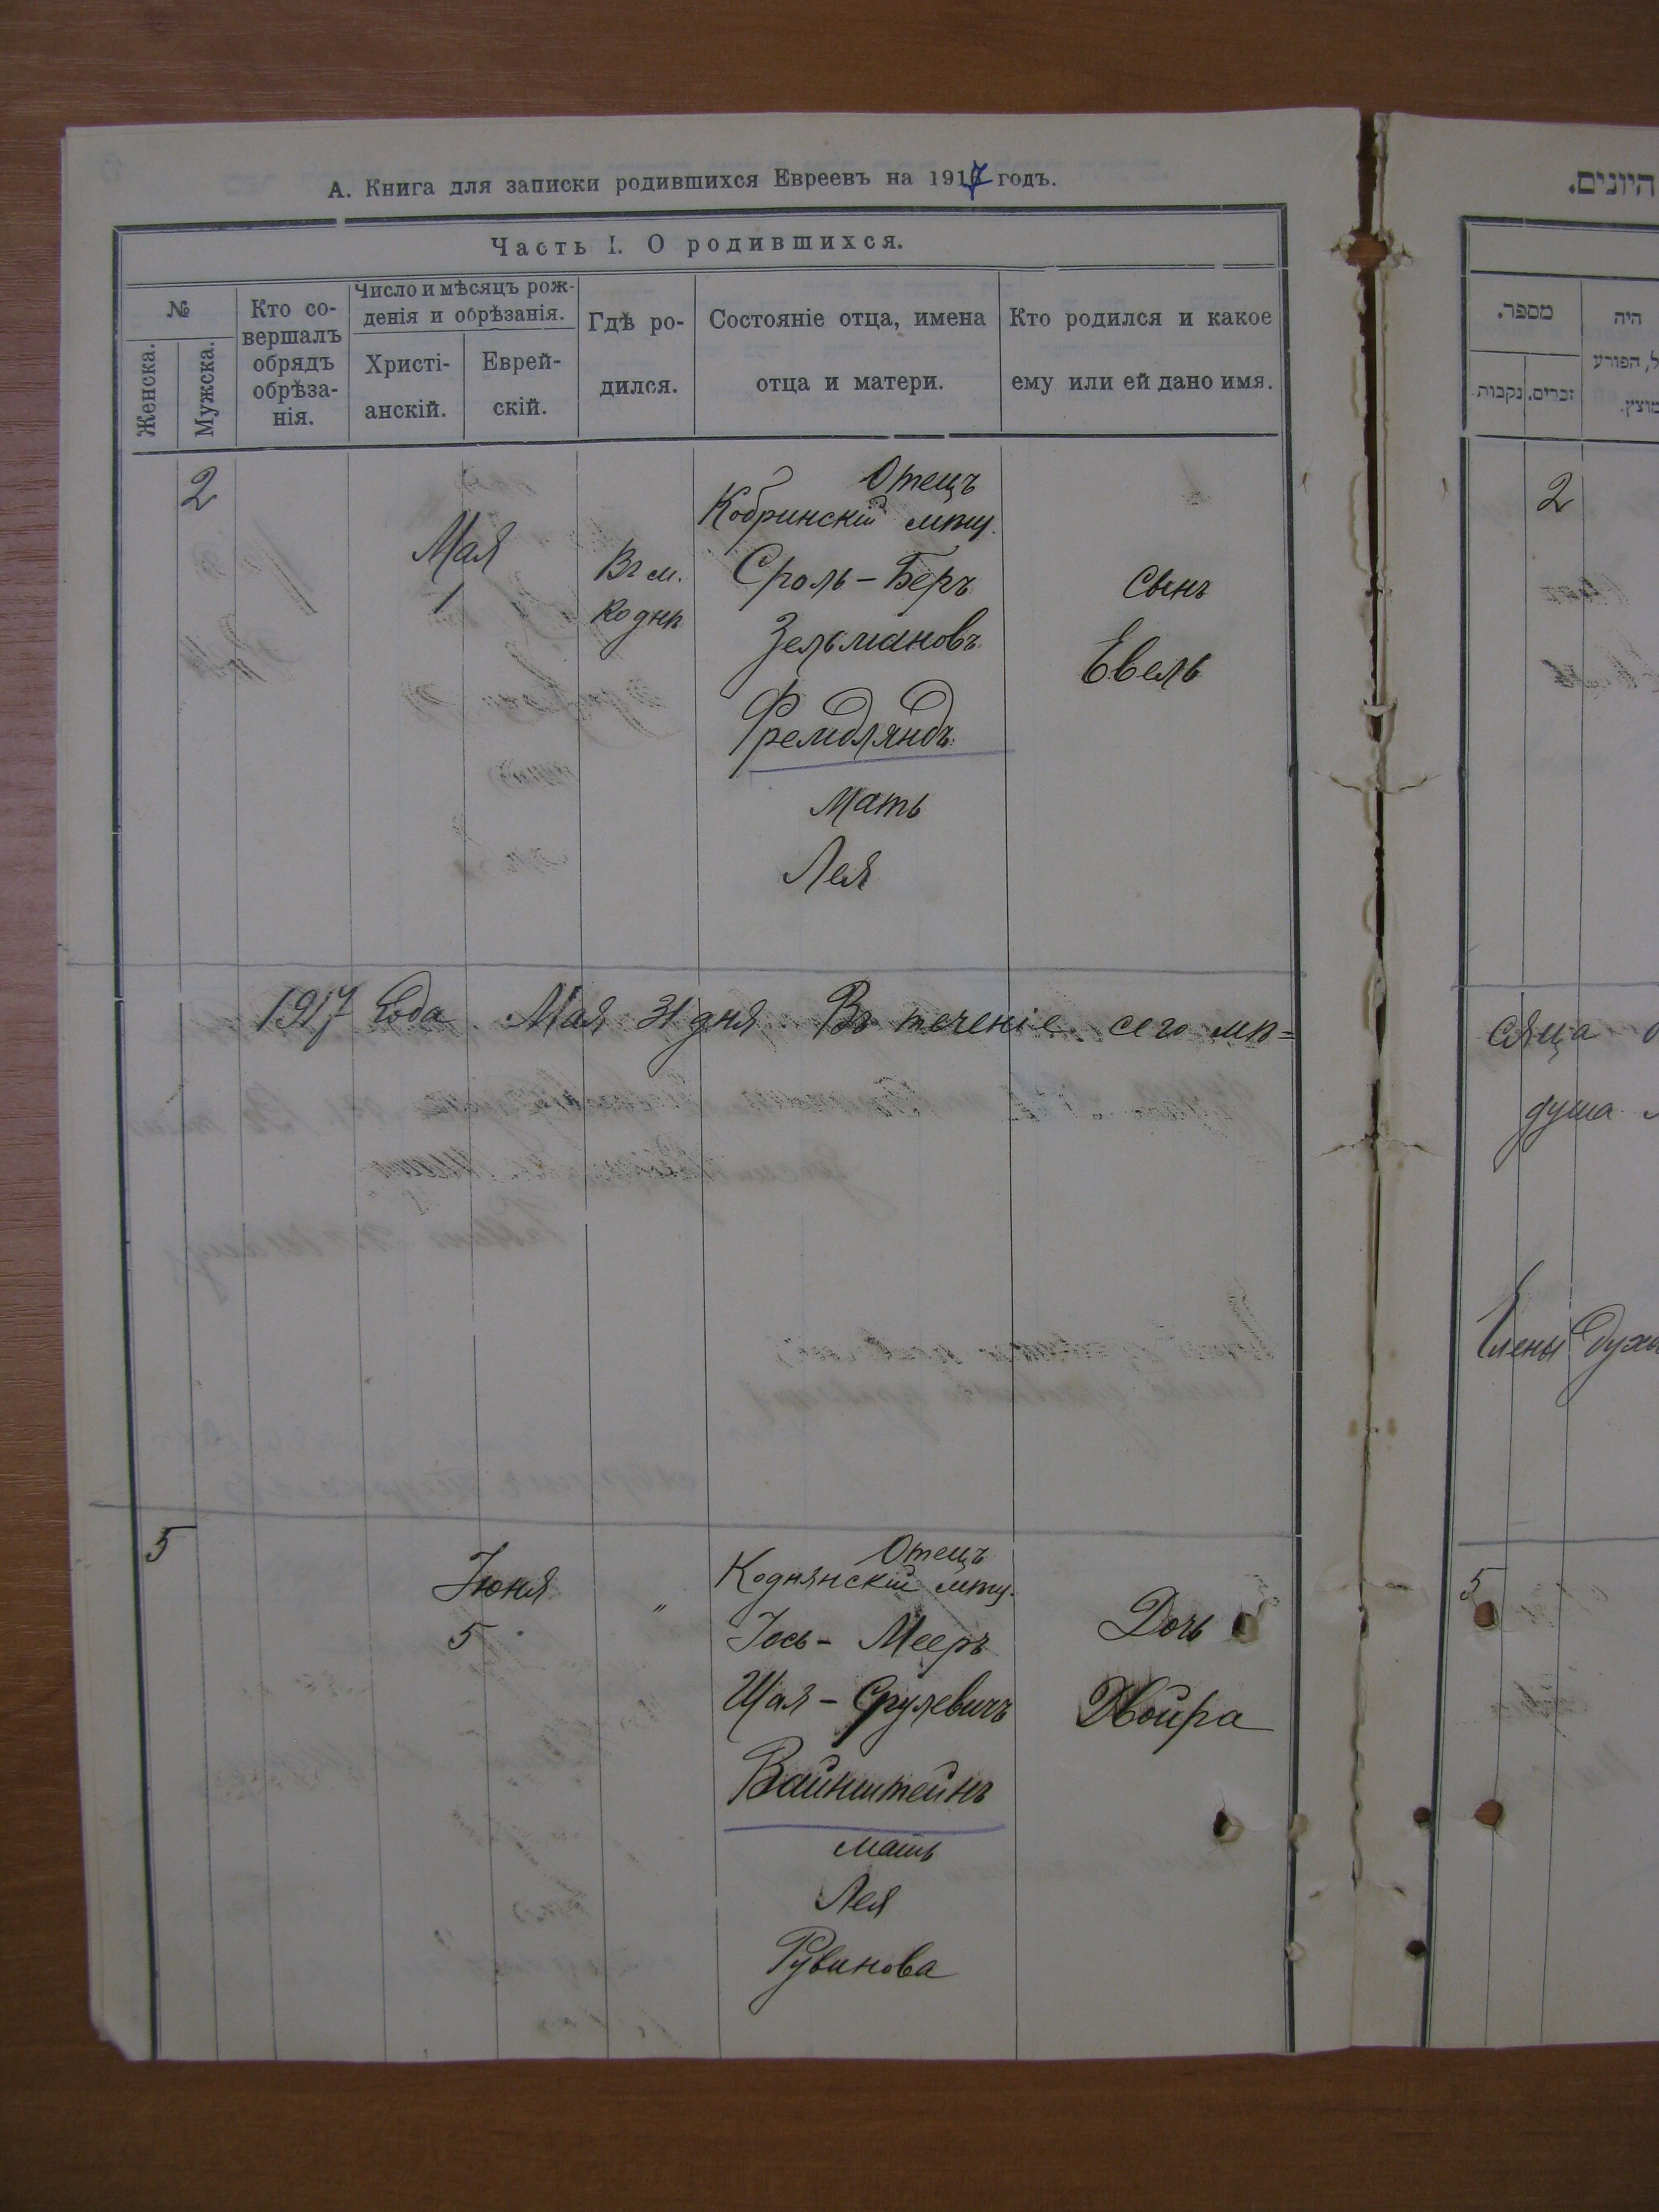 А. Книга для записки родившихся Евреевъ на 1917 годъ.
Часть I. О родившихся.
№
Женска.
Мужска.
Кто со-
вершалъ
обрядъ
обрѣза-
нія.
Число и мѣсяцъ рож-
денія и обрѣзанія.
Христі-
анскій.
Еврей-
скій.
Гдѣ ро-
дился.
Состояніе отца, имена
отца и матери.
Кто родился и какое
ему или ей дано имя.
2
Мая
1
Въ м.
Коднѣ
Отецъ
Кобринскій мѣщ.
Сроль-Беръ
Зельмановъ
Фремдляндъ
Мать
Лея
Сынъ
Евель
1917 Года Мая 31 дня Въ теченіе сего мѣ=
5
Іюня
5
"
Отецъ
Коднянскій мѣщ.
Іось- Мееръ
Шая- Срулевичъ
Вайнштейнъ
Мать
Лея
Рувинова
Дочь
Двойра
היונים.
מספר.
זכרים.
נקבות
היה
ל, הפורע
מוצץ.
2
сяца
душа
Члены Духо
5